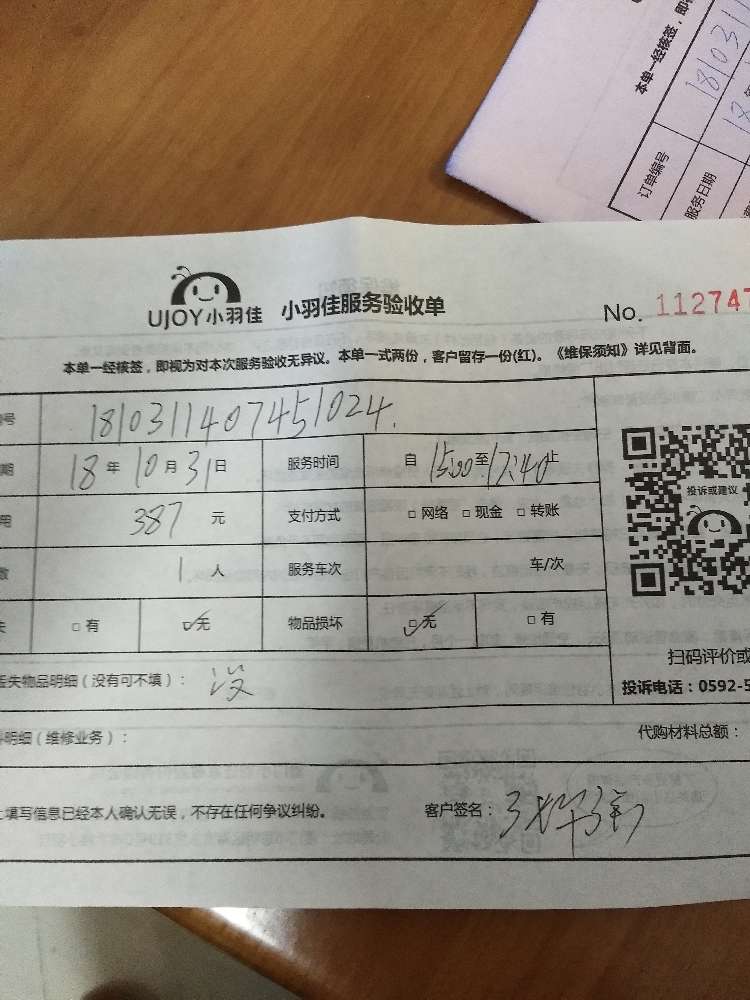 本单一经核签，即
订单编号 181031
服务日期 18
UJOY小羽佳 小羽佳服务验收单 No. 112747
本单一经核签，即视为对本次服务验收无异议。本单一式两份，客户留存一份(红)。《维保须知》详见背面。
号 1810311407451024
期 18年10月31日 服务时间 自15:00至17:40止
用 387元 支付方式 □网络 □现金 □转账
数 1人 服务车次 车/次
失 □有 ☑无 物品损坏 ☑无 □有
投诉或建议
扫码评价或
丢失物品明细（没有可不填）： 没
投诉电话：0592-5
料明细（维修业务）： 代购材料总额：
上填写信息已经本人确认无误，不存在任何争议纠纷。 客户签名：